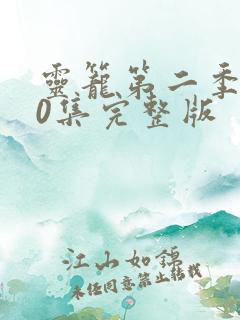 靈籠第二季
0集完整版
江山如錦
未任同意禁止转载